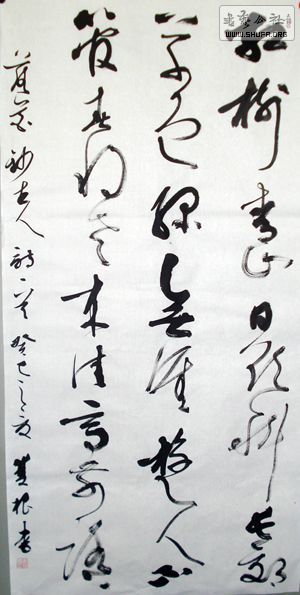 书艺公社
WWW.SHUFA.ORG
红树青山日欲斜长郊
草色绿无涯游人不
管春将老来往亭前踏
落花 抄古人诗一首 癸巳之夏 根书